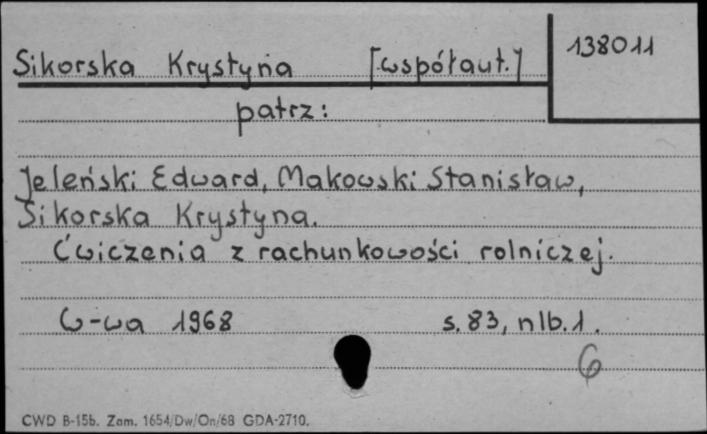 Sikorska Krystyna [współaut.]
138011
patrz:
Jeleński Edward, Makowski Stanisław,
Sikorska Krystyna.
Ćwiczenia z rachunkowości rolniczej.
W-wa 1968 s. 83, nlb. 1.
6
CWD B-15b. Zam. 1654/Dw/On/68 GDA-2710.